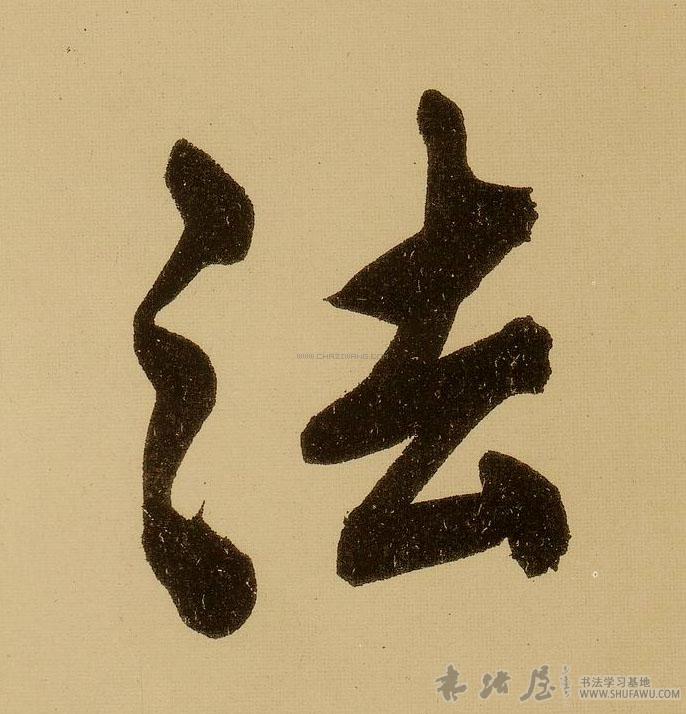 法
WWW.CHAZIWANG.COM
书法屋
书法学习基地
WWW.SHUFAWU.COM